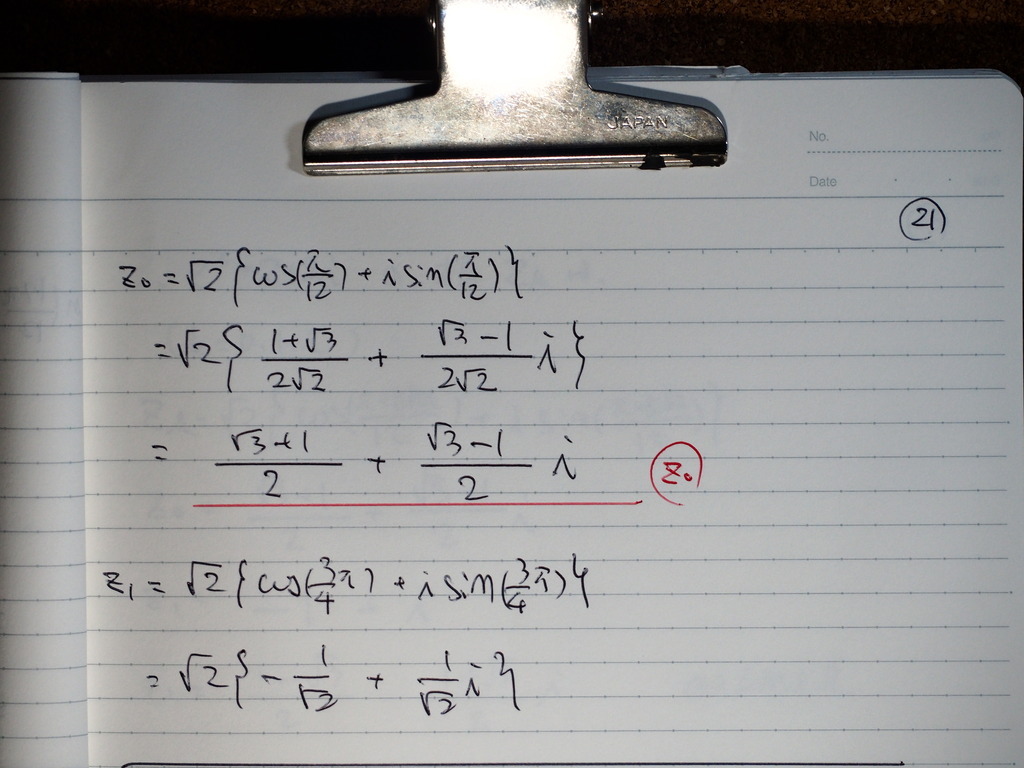 JAPAN
No.
Date
21
z₀ = √2 { cos(π/12) + i sin(π/12) }
= √2 { (1+√3)/(2√2) + (√3-1)/(2√2) i }
= (√3+1)/2 + (√3-1)/2 i z₀
z₁ = √2 { cos(3/4 π) + i sin(3/4 π) }
= √2 { - 1/√2 + 1/√2 i }